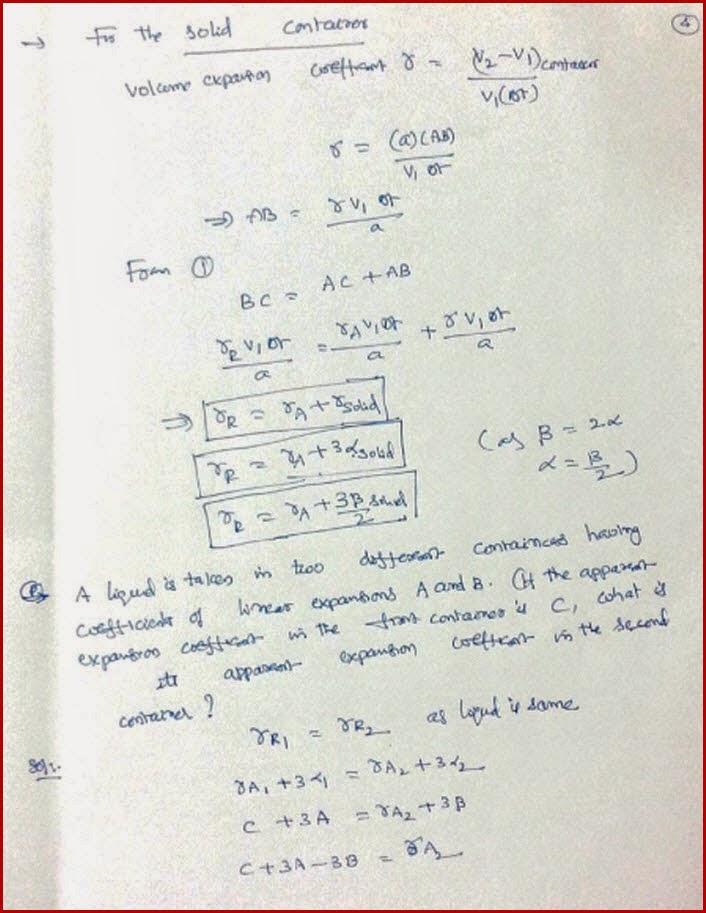 ④
→ For the solid container
Volume expansion coefficient γ = (V₂-V₁)container / V₁(Δt)
γ = (a)(AB) / V₁ Δt
⇒ AB = γ V₁ Δt / a
From ①
BC = AC + AB
γR V₁ Δt / a = γA V₁ Δt / a + γ V₁ Δt / a
⇒ γR = γA + γsolid
γR = γA + 3αsolid (as β = 2α
γR = γA + 3β/2 solid α = β/2)
A liquid is taken in two different containers having
coefficients of linear expansions A and B. If the apparent
expansion coefficient in the first container is C, what is
its apparent expansion coefficient in the second
container?
Sol:- γR₁ = γR₂ as liquid is same
γA₁ + 3α₁ = γA₂ + 3α₂
C + 3A = γA₂ + 3B
C + 3A - 3B = γA₂